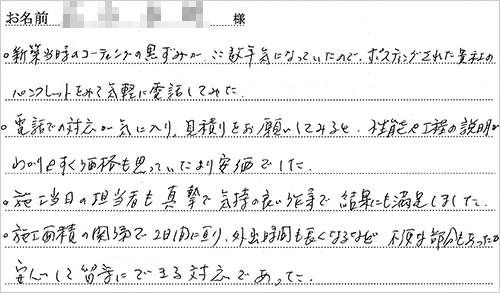 お名前 様
○新築当時のコーティングの黒ずみが、ここ数年気になっていたので、ポスティングされた貴社の
パンフレットをみて気軽に電話してみた。
○電話での対応が気に入り、見積りをお願いしてみると、性能や工程の説明が
わかりやすく価格も思っていたより安価でした。
○施工当日の担当者も真摯で気持の良い作業で結果にも満足しました。
○施工面積の関係で2日間に亘り、外出時間も長くなるなど不便な部分もあったが
安心して留守にできる対応であった。